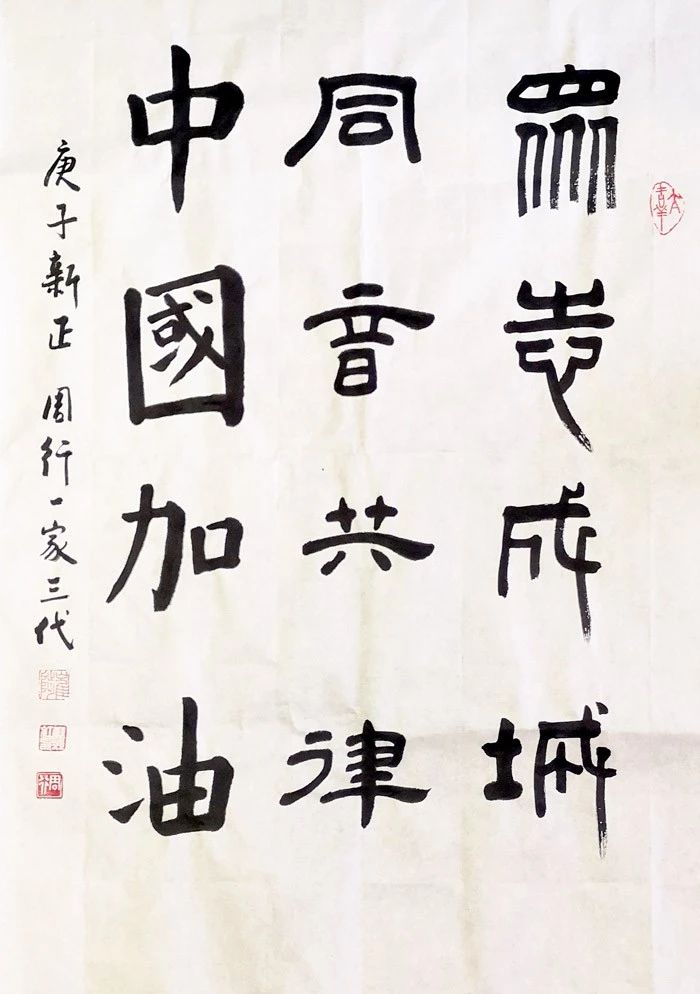 眾志成城
同音共律
中國加油
庚子新正 周行一家三代